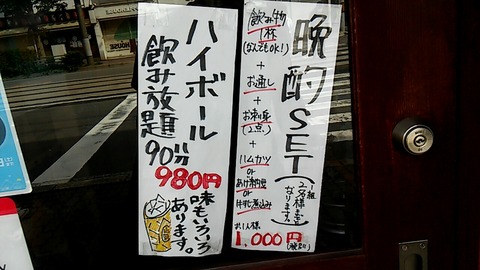 晩酌SET
(一組2名様までとなります。)
飲み物
1杯
(なんでもOK!)
+
お通し
+
お刺身
(2点)
+
ハムカツ
or
あげ納豆
or
牛すじ煮込み
お1人様
1,000円(税込)
ハイボール
飲み放題
90分
980円
味もいろいろ
あります。